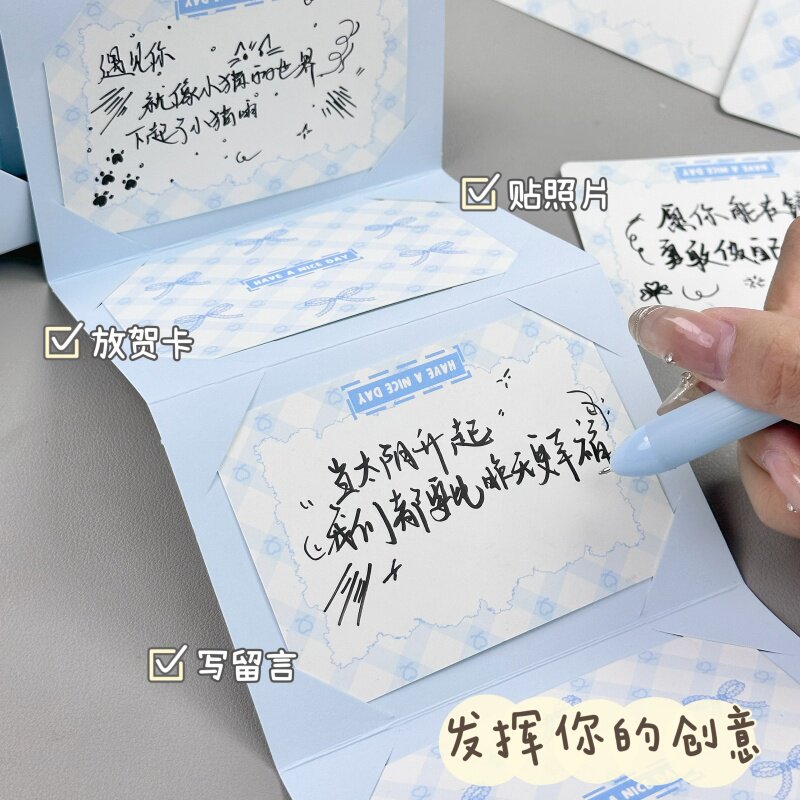 遇见你
就像小猫的世界
下起了小猫
贴照片
HAVE A NICE DAY
愿你能在
勇敢做自己
HAVE A NICE DAY
放贺卡
HAVE A NICE DAY
"当太阳升起"
我们都要比昨天更幸福
写留言
发挥你的创意